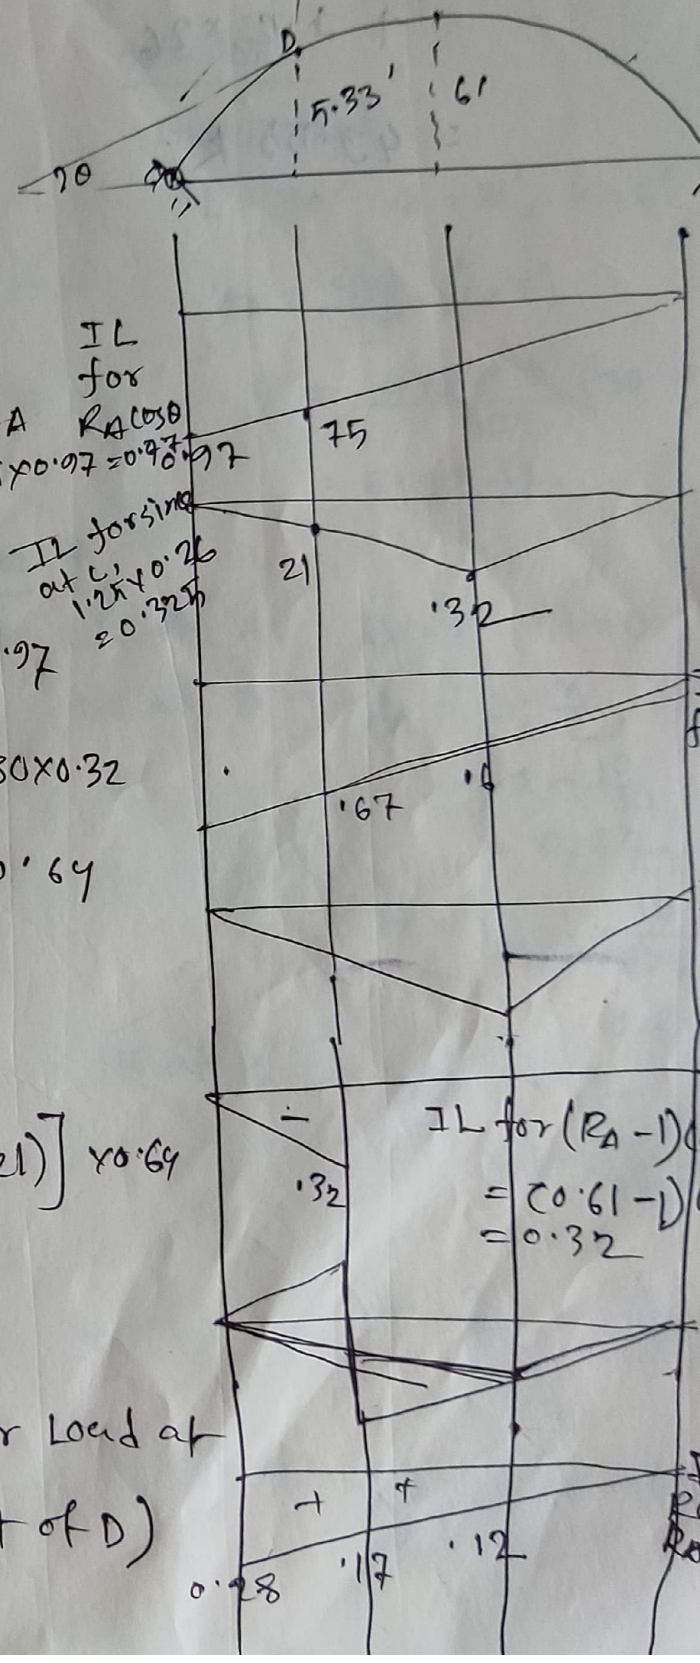 D
5.33'
6'
2θ
IL
for
A RA cosθ
×0.97 = 0.97
0.97
75
IL for sinθ
at C,
1.25×0.26
= 0.325
21
.32
.97
30×0.32
.67
.6
0.64
IL for (RA -1)
= (0.61-1)
= 0.32
-
.32
)] ×0.64
r Load at
+ +
t of D)
0.28
.17
.12